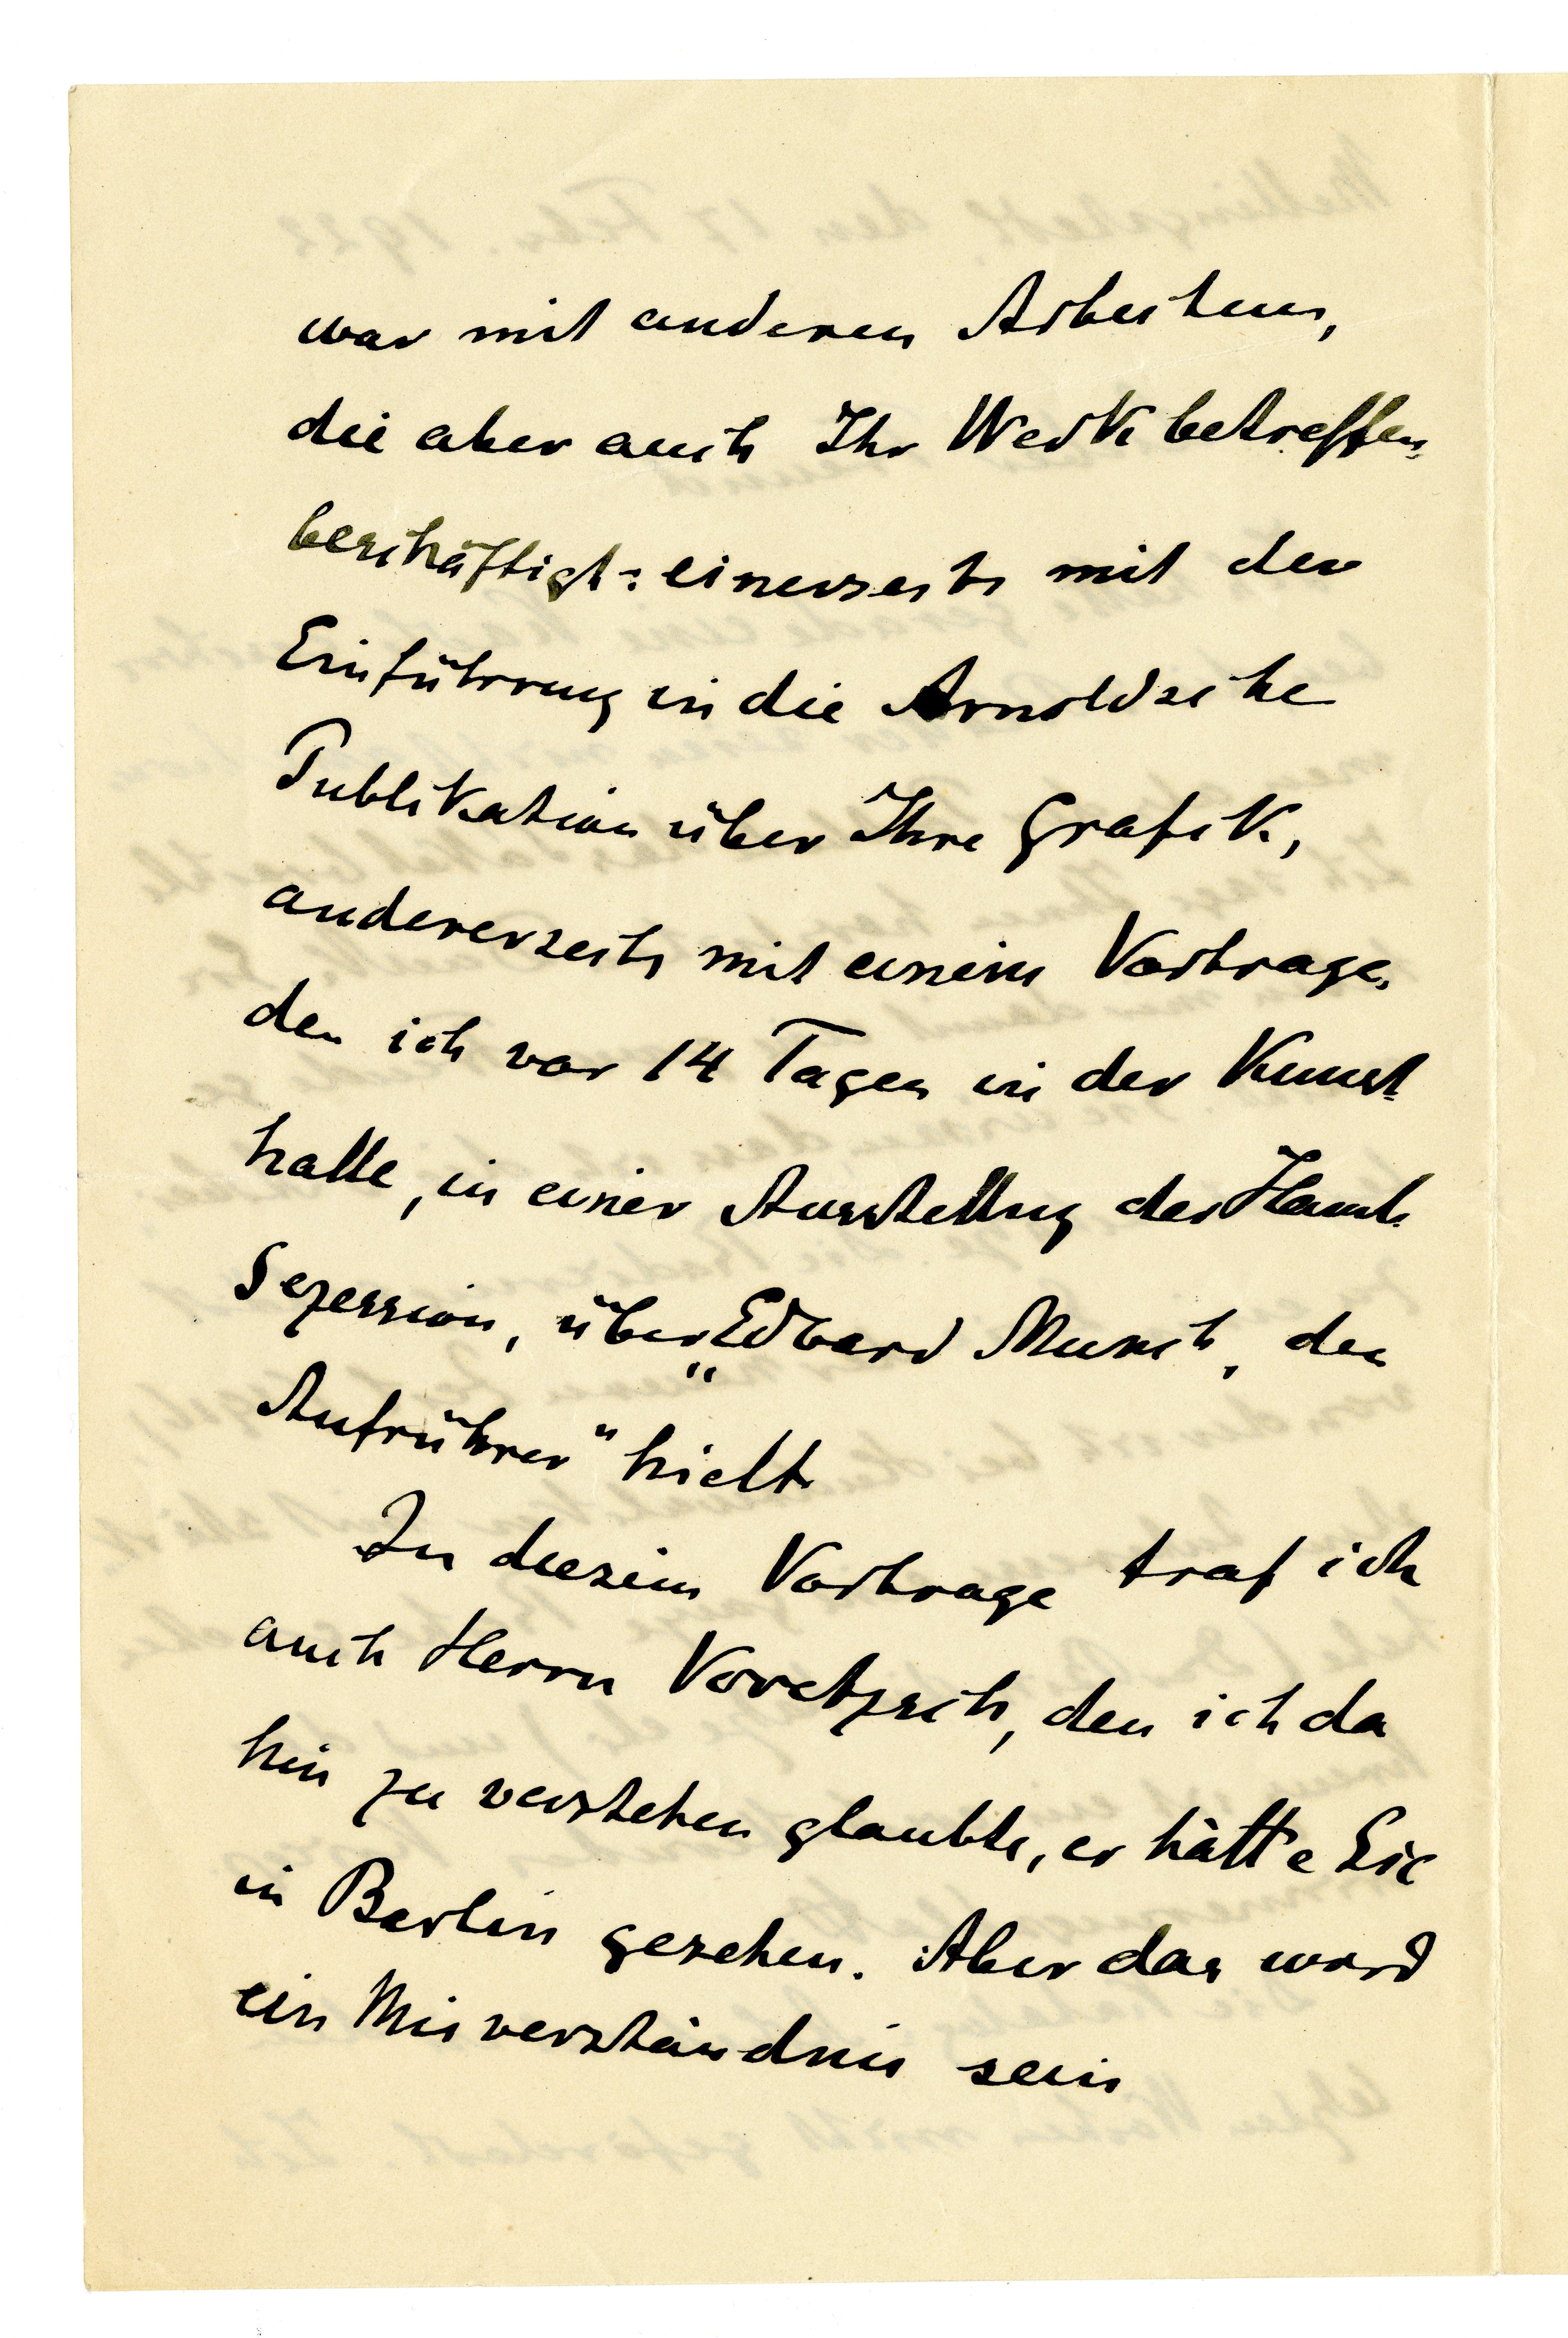 war mit anderen Arbeiten,
die aber auch Ihr Werk betreffen,
beschäftigt: einerseits mit der
Einführung in die Arnoldsche
Publikation über Ihre Grafik,
andererseits mit einem Vortrage,
den ich vor 14 Tagen in der Kunst-
halle, in einer Ausstellung der Hamb.
Sezession, über „Edvard Munch, den
Aufrührer" hielt.
In diesem Vortrage traf ich
auch Herrn Voretzsch, den ich da
hin zu verstehen glaubte, er hätte Sie
in Berlin gesehen. Aber das ward
ein Misverständnis sein